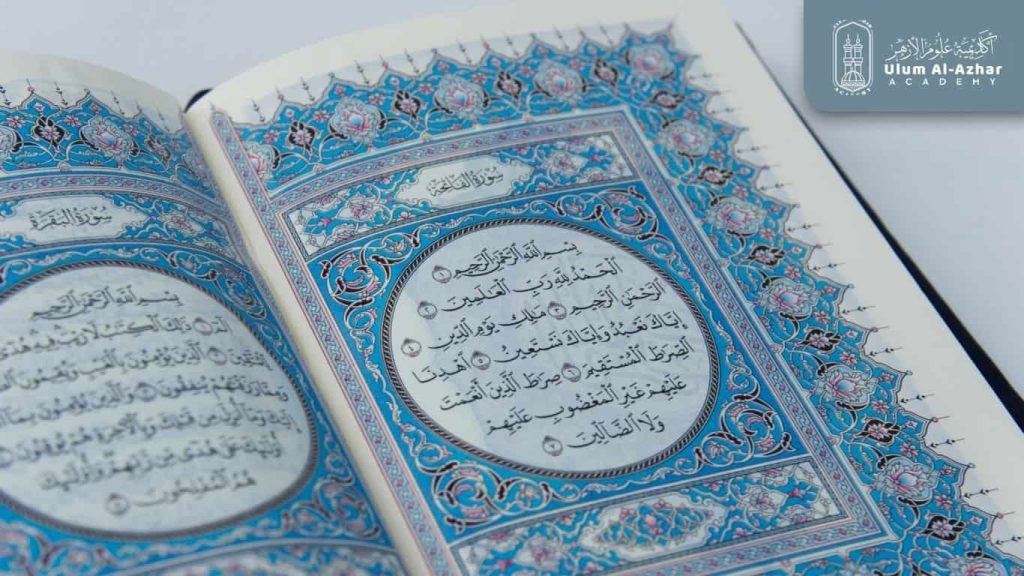 أكاديمية علوم الأزهر
Ulum Al-Azhar
ACADEMY
سُورَةُ الفَاتِحَةِ
بِسْمِ ٱللَّهِ ٱلرَّحْمَٰنِ ٱلرَّحِيمِ ١
ٱلْحَمْدُ لِلَّهِ رَبِّ ٱلْعَٰلَمِينَ ٢
ٱلرَّحْمَٰنِ ٱلرَّحِيمِ ٣ مَٰلِكِ يَوْمِ ٱلدِّينِ ٤
إِيَّاكَ نَعْبُدُ وَإِيَّاكَ نَسْتَعِينُ ٥ ٱهْدِنَا
ٱلصِّرَٰطَ ٱلْمُسْتَقِيمَ ٦ صِرَٰطَ ٱلَّذِينَ أَنْعَمْتَ
عَلَيْهِمْ غَيْرِ ٱلْمَغْضُوبِ عَلَيْهِمْ
وَلَا ٱلضَّآلِّينَ ٧
سُورَةُ البَقَرَةِ
بِسْمِ ٱللَّهِ ٱلرَّحْمَٰنِ ٱلرَّحِيمِ
الٓمٓ ١ ذَٰلِكَ ٱلْكِتَٰبُ لَا رَيْبَ فِيهِ هُدًى
لِّلْمُتَّقِينَ ٢ ٱلَّذِينَ يُؤْمِنُونَ بِٱلْغَيْبِ وَيُقِيمُونَ
وَمِمَّا رَزَقْنَٰهُمْ يُنفِقُونَ ٣ وَٱلَّذِينَ يُؤْمِنُونَ بِمَآ
إِلَيْكَ وَمَآ أُنزِلَ مِن قَبْلِكَ وَبِٱلْءَاخِرَةِ هُمْ يُوقِنُونَ
أُو۟لَٰٓئِكَ عَلَىٰ هُدًى مِّن رَّبِّهِمْ وَأُو۟لَٰٓئِكَ
هُمُ ٱلْمُفْلِحُونَ ٥